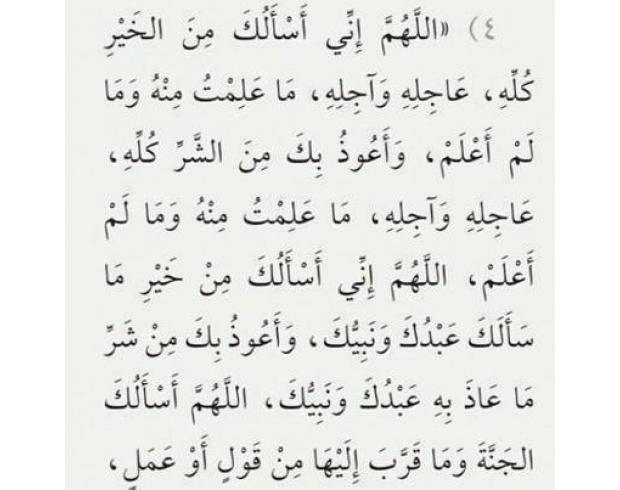 ٤) «اللَّهُمَّ إِنِّي أَسْأَلُكَ مِنَ الخَيْرِ
كُلِّهِ، عَاجِلِهِ وَآجِلِهِ، مَا عَلِمْتُ مِنْهُ وَمَا
لَمْ أَعْلَمْ، وَأَعُوذُ بِكَ مِنَ الشَّرِّ كُلِّهِ،
عَاجِلِهِ وَآجِلِهِ، مَا عَلِمْتُ مِنْهُ وَمَا لَمْ
أَعْلَمْ، اللَّهُمَّ إِنِّي أَسْأَلُكَ مِنْ خَيْرِ مَا
سَأَلَكَ عَبْدُكَ وَنَبِيُّكَ، وَأَعُوذُ بِكَ مِنْ شَرِّ
مَا عَاذَ بِهِ عَبْدُكَ وَنَبِيُّكَ، اللَّهُمَّ أَسْأَلُكَ
الجَنَّةَ وَمَا قَرَّبَ إِلَيْهَا مِنْ قَوْلٍ أَوْ عَمَلٍ،